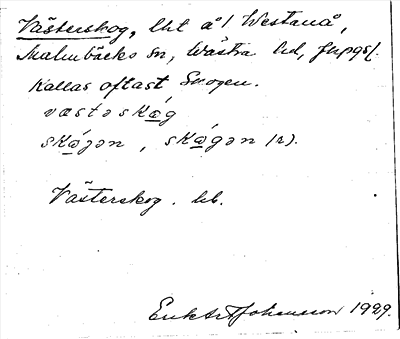 Västerskog, lht å Westanå,
Malmbäcks sn, Wästra hd, Jkpgs l.
Kallas oftast Skogen.
vastəskǻg
skǻgən, skǻgən /r).
Västerskog. hb.
Erik Art Johansson 1929.